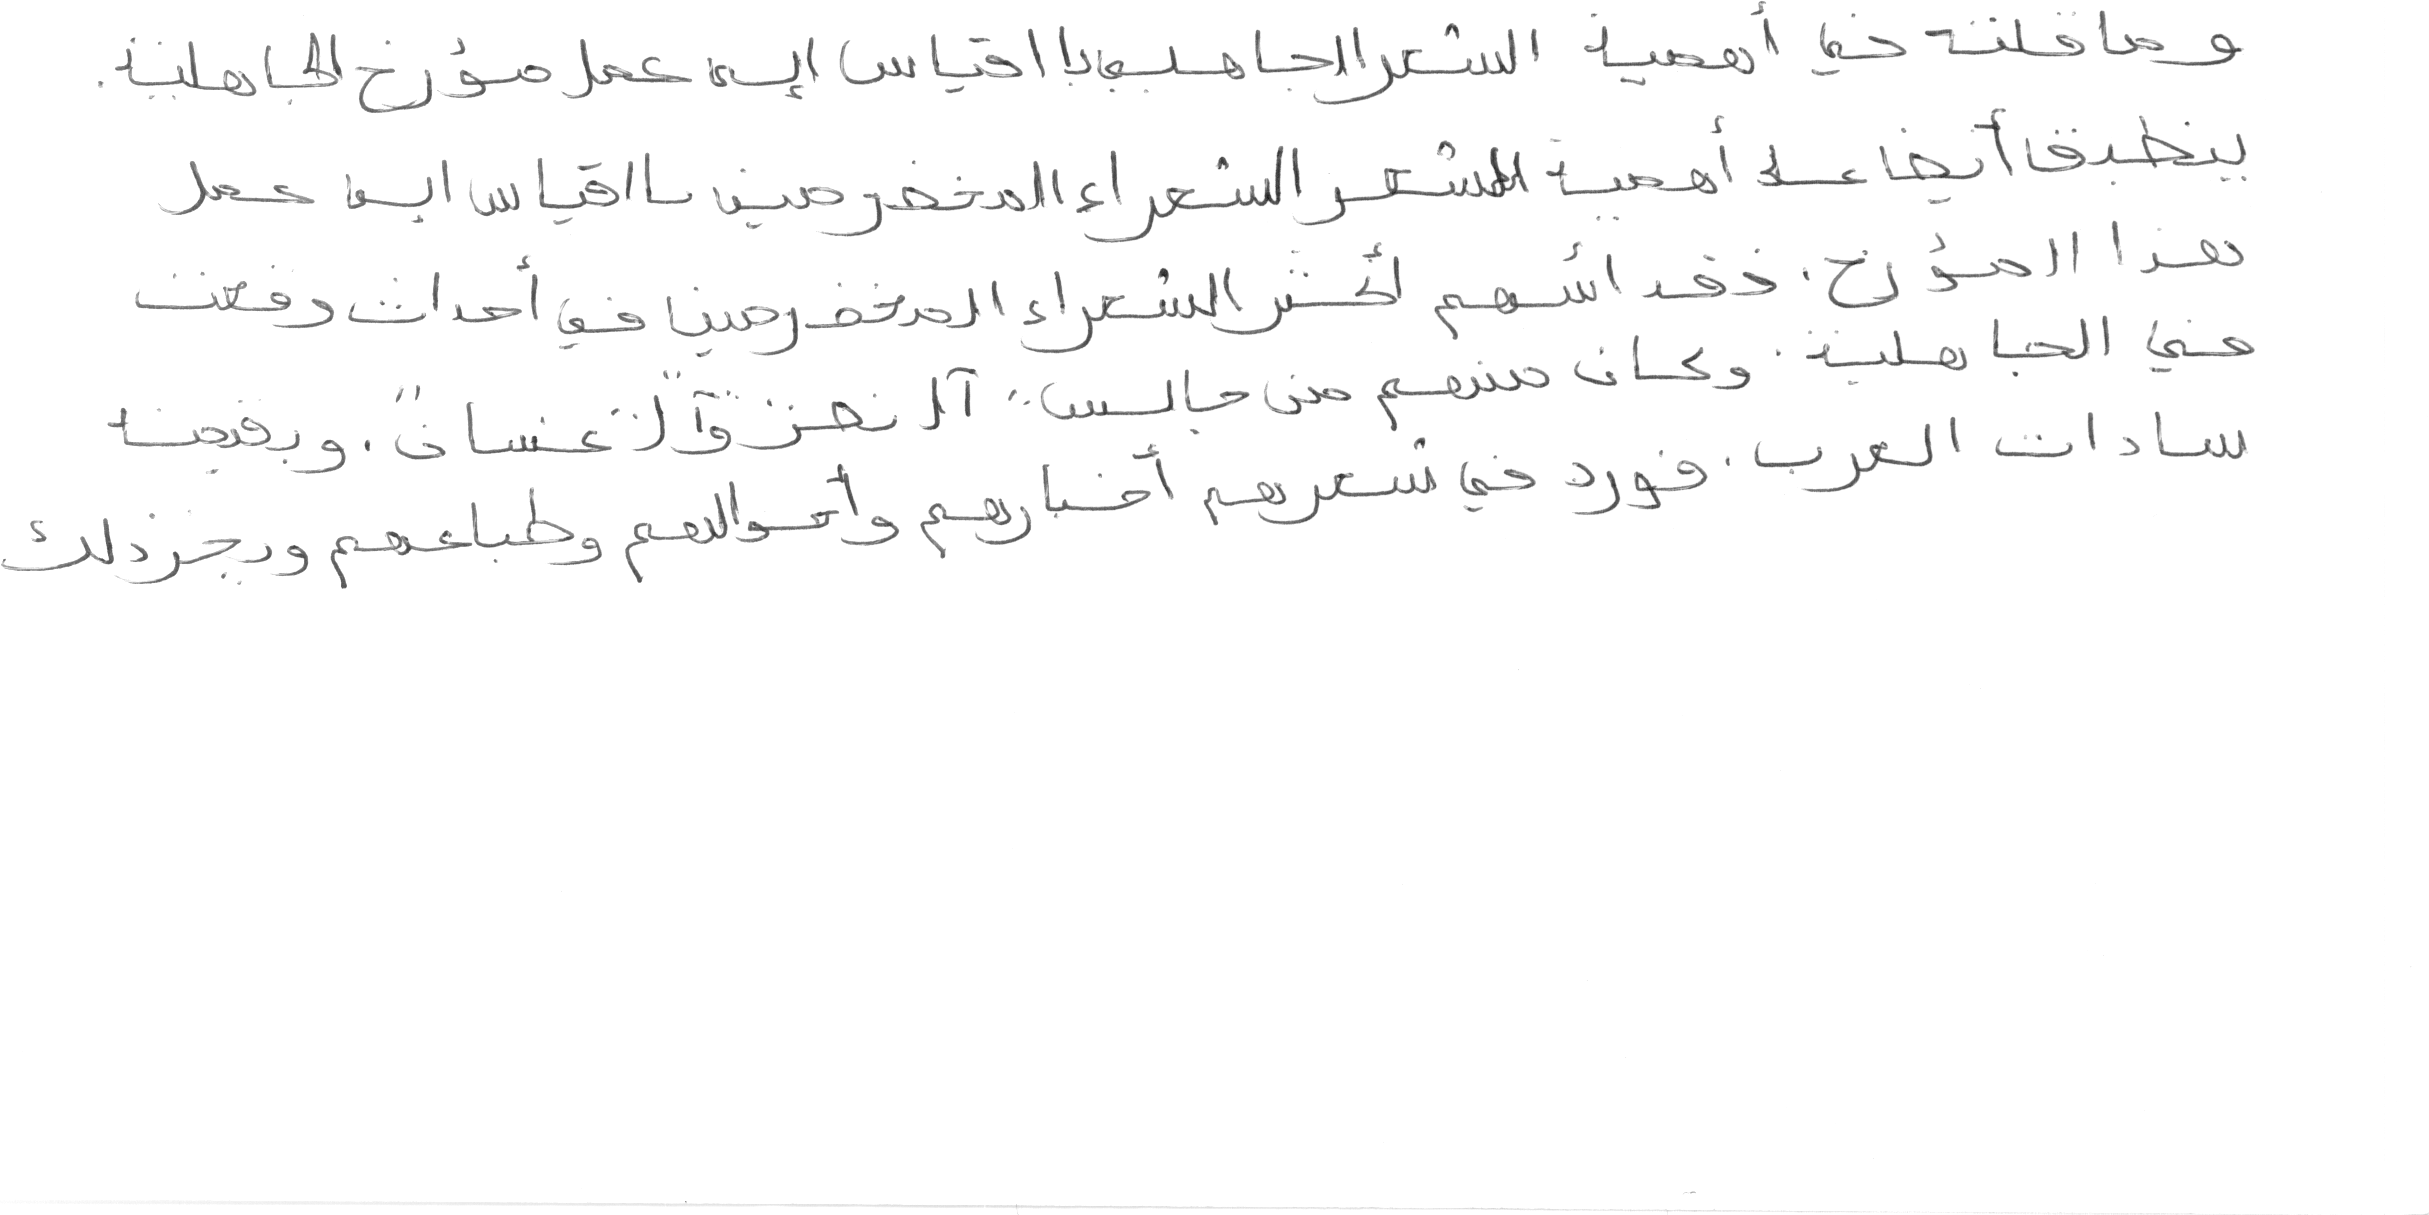 وما قلته في أهمية الشعر الجاهلي باقياس إلى عمل مؤرخ الجاهلية.
ينطبق أيضا على أهمية الشعر الشعراء المخضرمين باقياس الى عمل
هذا المؤرخ. فقد أسهم أكثر الشعراء المخضرمين في أحداث وقعت
في الجاهلية. وكان منهم من جالس "آل نصر" و"آل غسان"، وبقية
سادات العرب. فورد في شعرهم أخبارهم وأحوالهم وطباعهم وغير ذلك